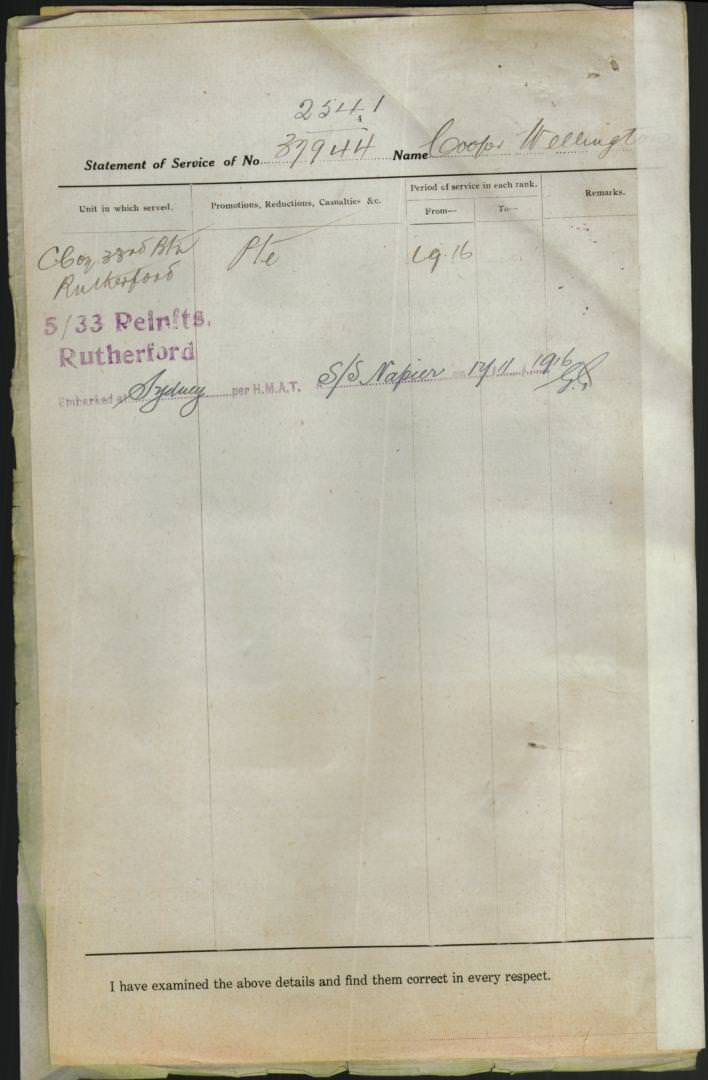 2541
Statement of Service of No. 37944 Name Cooper Wellingt
Unit in which served. Promotions, Reductions, Casualties &c. Period of service in each rank. Remarks.
From— To—
C Coy 33rd Btn Pte 1916
Rutherford
5/33 Reinfts.
Rutherford
Embarked at Sydney per H.M.A.T. S/S Napier on 17/11/1916
I have examined the above details and find them correct in every respect.